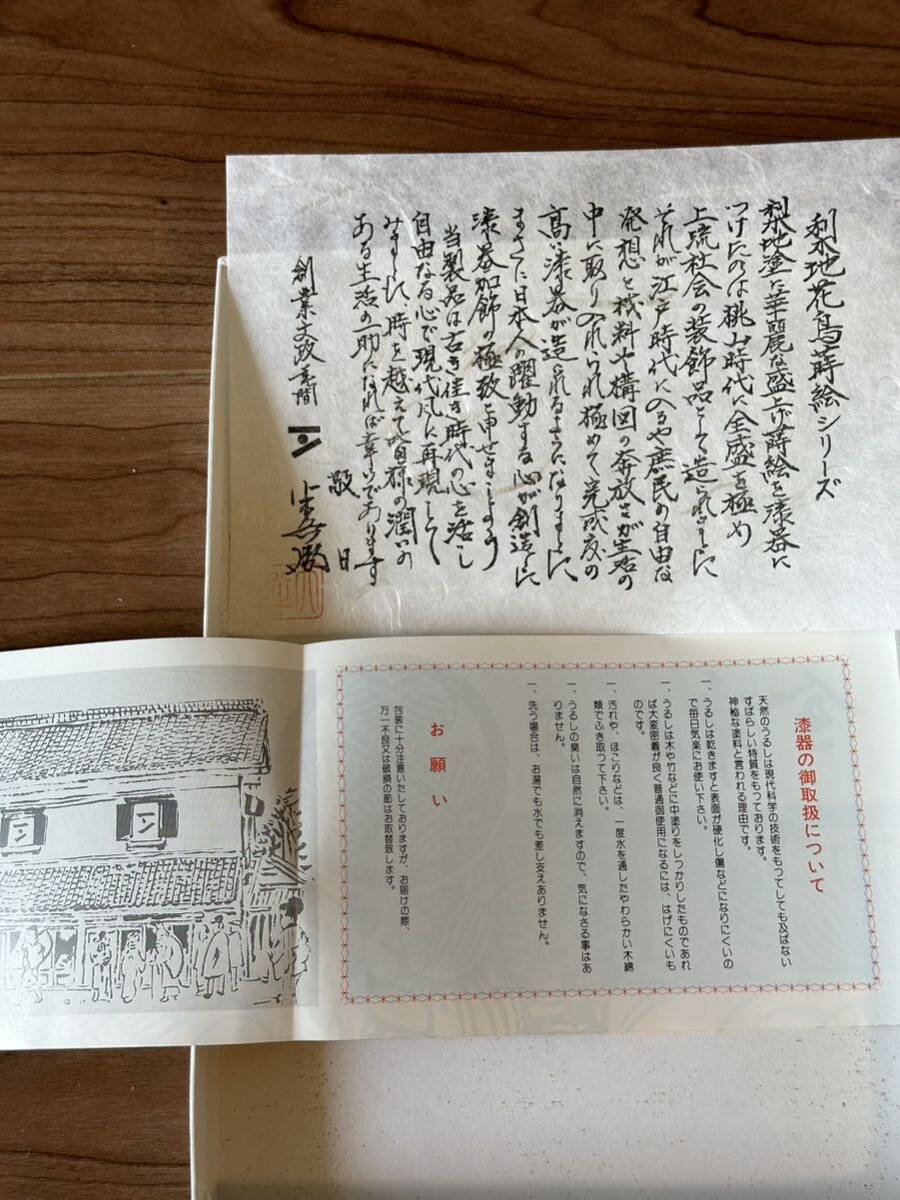 梨地花鳥蒔絵シリーズ
梨地塗に華麗な盛上げ蒔絵を漆器に
つけたのは桃山時代に全盛を極め
上流社会の装飾品として造られました
それが江戸時代に入るや庶民の自由な
発想と材料や構図の奔放さが生活の
中に取り入れられ極めて完成度の
高い漆器が造られるようになりました
まさに日本人の躍動する心が創造した
漆器加飾の極致と申せましょう
当製品は古き佳き時代の心を活し
自由なる心で現代風に再現して
みました 時を越えて皆様の潤いの
ある生活の一助になれば幸いであります
敬白
創業文政年間
漆器の御取扱について
天然のうるしは現代科学の技術をもってしても及ばない
すばらしい特質をもっております。
神秘な塗料と言われる理由です。
一、うるしは乾きますと表面が硬化し傷などになりにくいの
で毎日気楽にお使い下さい。
一、うるしは木や竹などに中塗りをしっかりしたものであれ
ば大変密着が良く普通御使用になるには、はげにくいも
のです。
一、汚れや、ほこりなどは、一度水を通したやわらかい木綿
類でふき取って下さい。
一、うるしの臭いは自然に消えますので、気になさる事はあ
りません。
一、洗う場合は、お湯でも水でも差し支えありません。
お願い
包装に十分注意いたしておりますが、お届けの際、
万一不良又は破損の節はお取替致します。